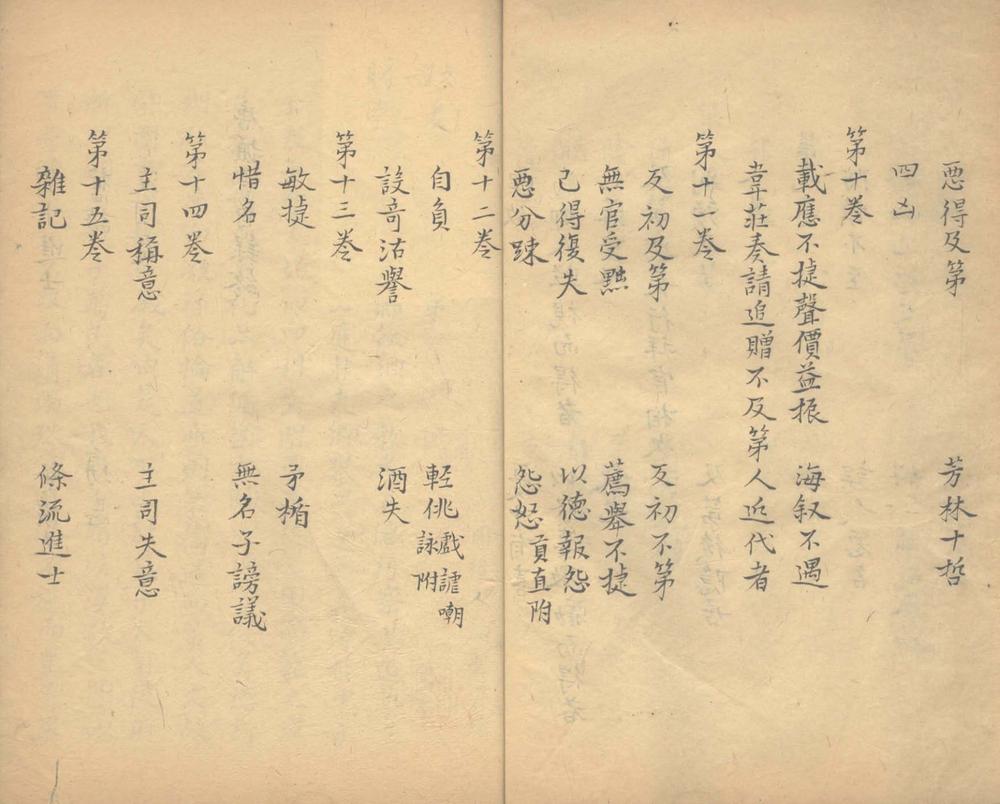 悪得及第　芳林十哲
四凶
第十巻
載應不捷聲價益振　海叙不遇
韋莊奏請追贈不及第人近代者
第十一巻
反初及第　反初不第
無官受黜　薦舉不捷
已得復失　以德報怨
悪分踈　怨怒貢直附
第十二巻
自負　輕佻戯謔嘲詠附
設奇沽譽　酒失
第十三巻
敏捷　矛楯
惜名　無名子謗議
第十四巻
主司稱意　主司失意
第十五巻
雜記　條流進士